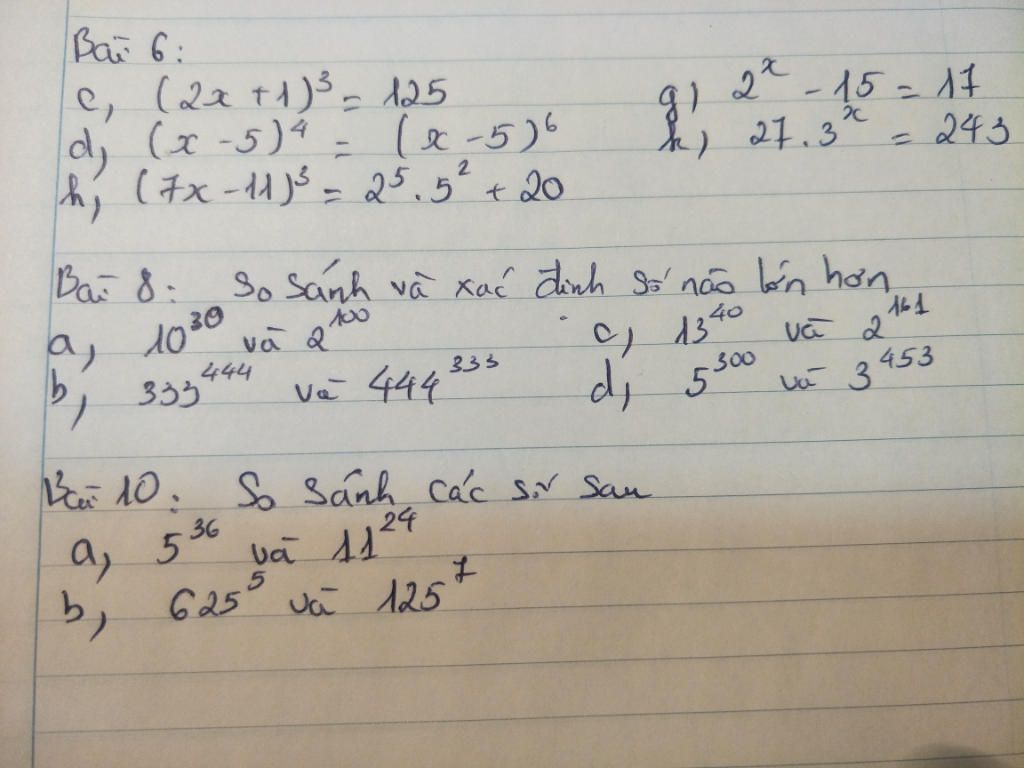 Bài 6:
c, (2x + 1)³ = 125 g, 2ˣ - 15 = 17
d, (x - 5)⁴ = (x - 5)⁶ h, 27 . 3ˣ = 243
h, (7x - 11)³ = 2⁵ . 5² + 20
Bài 8: So sánh và xác định số nào lớn hơn
a, 10³⁰ và 2¹⁰⁰ c, 13⁴⁰ và 2¹⁶¹
b, 333⁴⁴⁴ và 444³³³ d, 5³⁰⁰ và 3⁴⁵³
Bài 10: So sánh các số sau
a, 5³⁶ và 11²⁴
b, 625⁵ và 125⁷